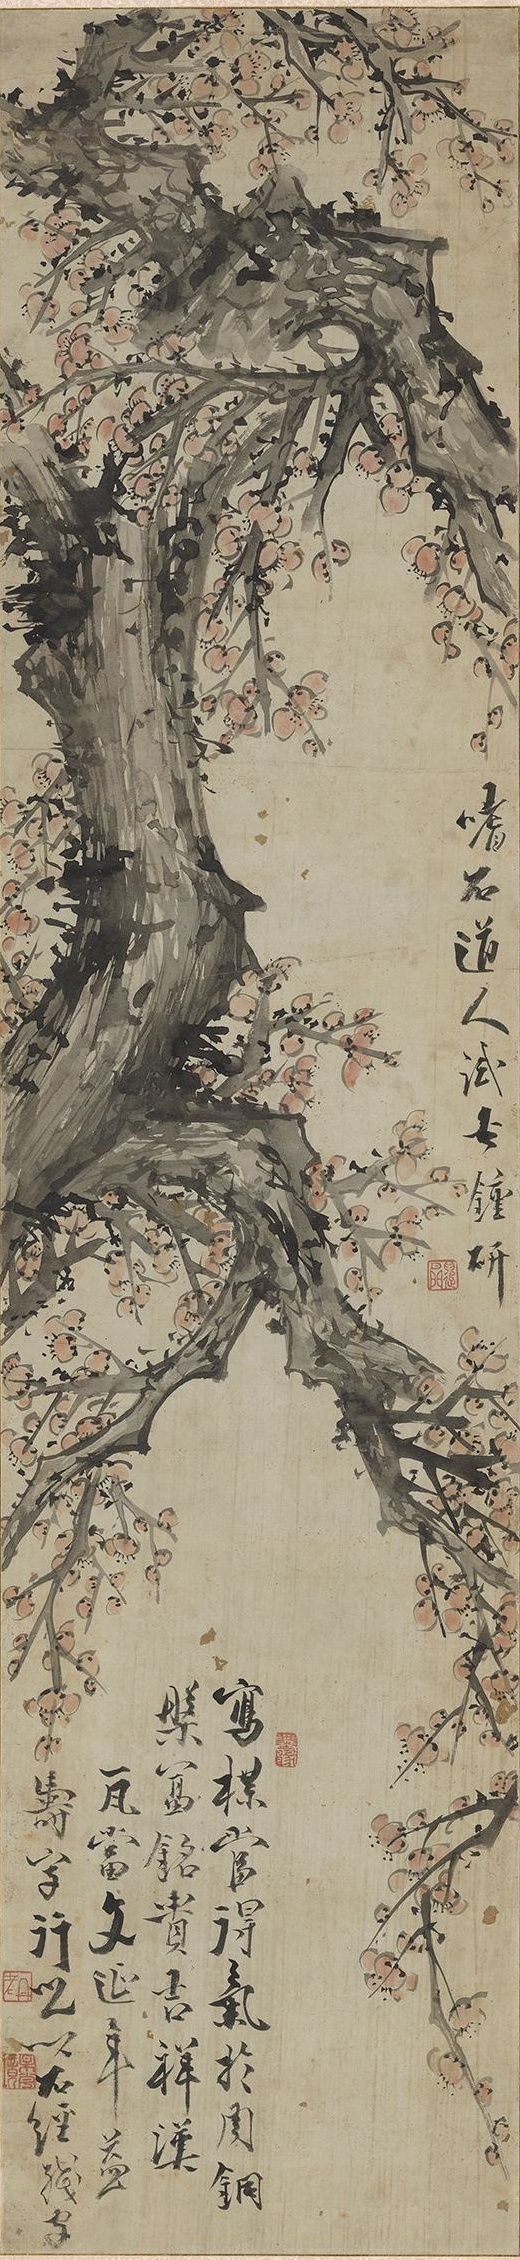 嗜石道人試古鐘研
寫楳當得氣於周銅
槃富銘貴吉祥漢
瓦當文延年益
壽字行之以石經殘字